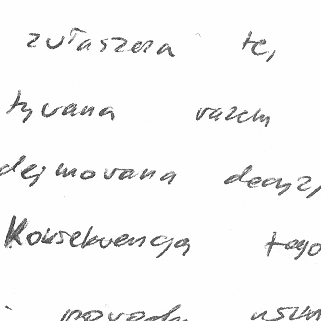 zwłaszcza te,
tywana razem
dejmowana decyz,
Konsekwencją tego
powodu